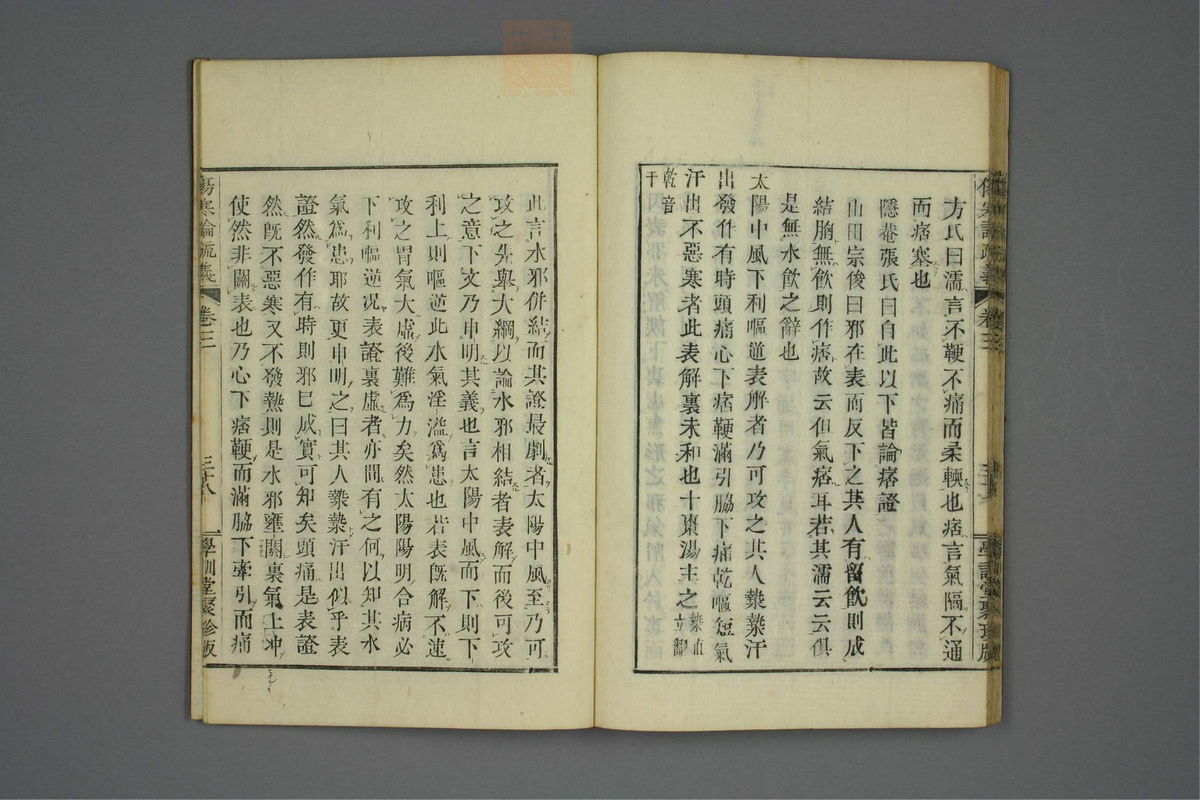 方氏曰濡言不鞕不痛而柔輭也痞言氣隔不通
而痞塞也
隱菴張氏曰自此以下皆論痞證
山田宗俊曰邪在表而反下之其人有留飲則成
結胸無飲則作痞故云但氣痞耳若其濡云云俱
是無水飲之辭也
太陽中風下利嘔逆表解者乃可攻之其人漐漐汗
出發作有時頭痛心下痞鞕滿引脇下痛乾嘔短氣
汗出不惡寒者此表解裏未和也十棗湯主之漐直立翻
乾音干
傷寒論疏義 卷三 三十八 學訓堂聚珍版
此言水邪併結而其證最劇者太陽中風至乃可
攻之先舉大綱以論水邪相結者表解而後可攻
之意下文乃申明其義也言太陽中風而下則下
利上則嘔逆此水氣淫溢爲患也若表既解不速
攻之胃氣大虛後難爲力矣然太陽陽明合病必
下利嘔逆况表證裏虛者亦間有之何以知其水
氣爲患耶故更申明之曰其人漐漐汗出似乎表
證然發作有時則邪已成實可知矣頭痛是表證
然既不惡寒又不發熱則是水邪壅閼裏氣上冲
使然非關表也乃心下痞鞕而滿脇下牽引而痛
傷寒論疏義 卷三 三十八 學訓堂聚珍版